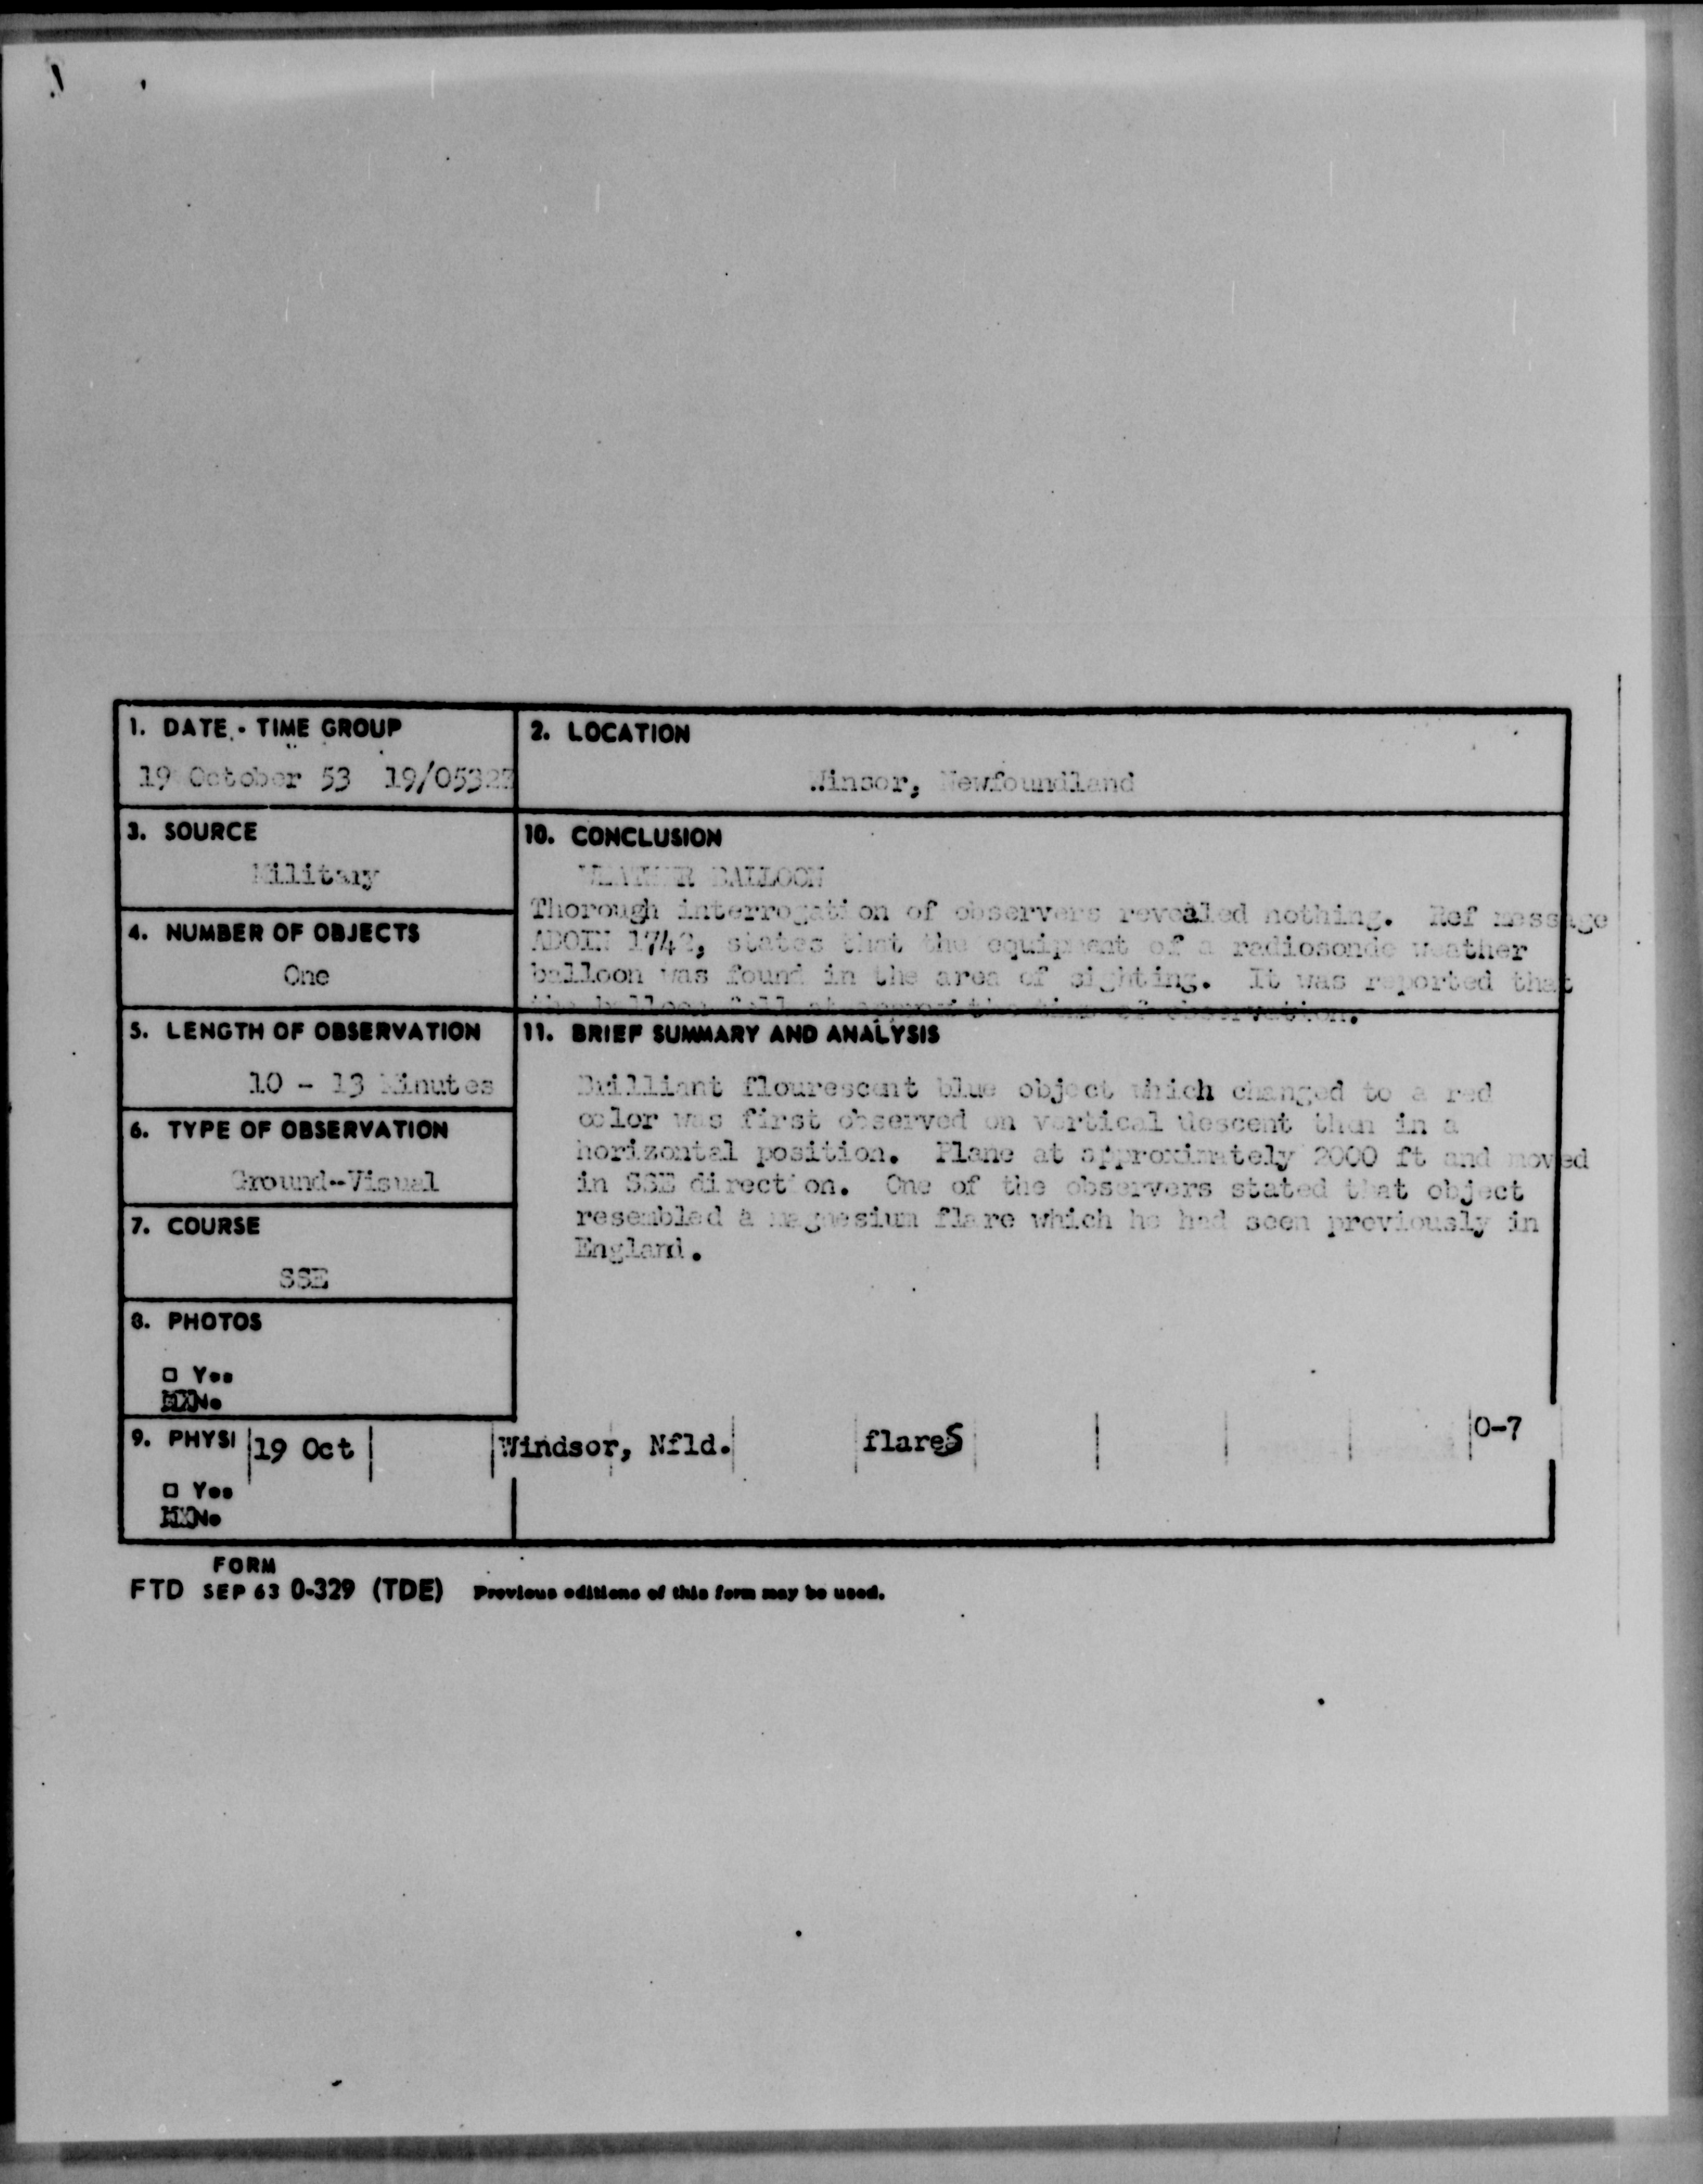 1. DATE - TIME GROUP
19 October 53 19/0532Z
2. LOCATION
Winsor, Newfoundland
3. SOURCE
Military
10. CONCLUSION
WEATHER BALLOON
Thorough interrogation of observers revealed nothing. Ref message
ADOIN 1742, states that the equipment of a radiosonde weather
balloon was found in the area of sighting. It was reported that
the balloon fell at approx the time of observation.
4. NUMBER OF OBJECTS
One
5. LENGTH OF OBSERVATION
10 - 13 Minutes
11. BRIEF SUMMARY AND ANALYSIS
Brilliant flourescent blue object which changed to a red
color was first observed on vertical descent then in a
horizontal position. Plane at approximately 2000 ft and moved
in SSE direction. One of the observers stated that object
resembled a magnesium flare which he had seen previously in
England.
6. TYPE OF OBSERVATION
Ground--Visual
7. COURSE
SSE
8. PHOTOS
□ Yes
XX No
9. PHYSI
19 Oct Windsor, Nfld. flares 0-7
□ Yes
XX No
FORM
FTD SEP 63 0-329 (TDE) Previous editions of this form may be used.